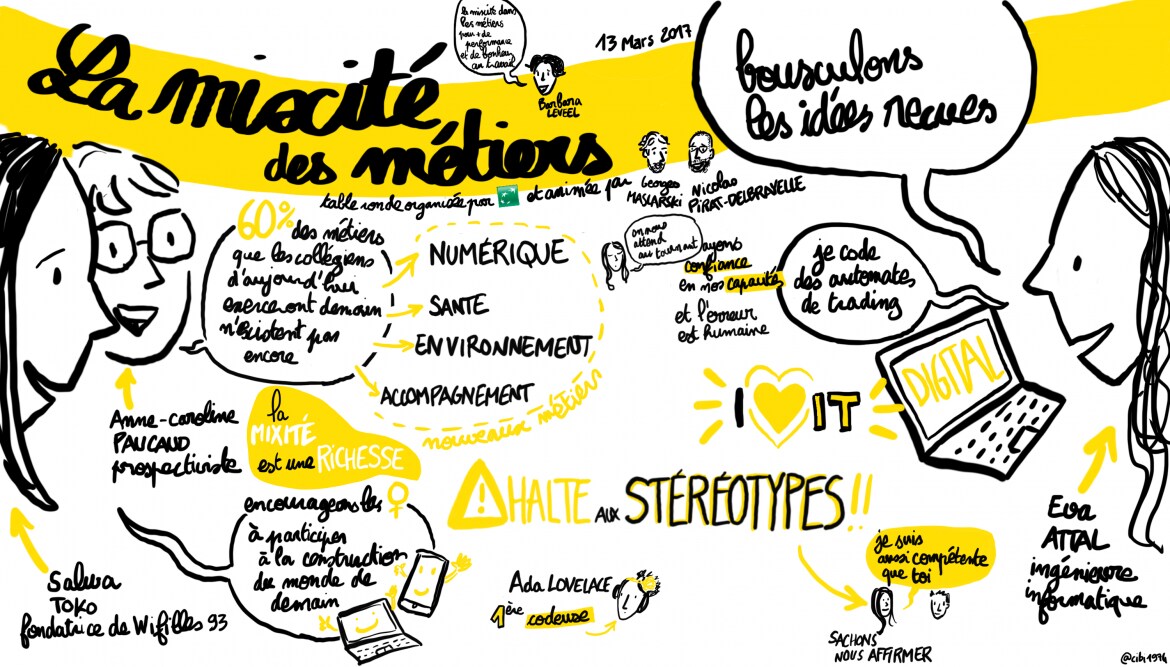 la mixité dans
les métiers
pour + de
performance
et de bonheur
au travail
Barbara
LEVEEL
13 Mars 2017
La mixité
des métiers
table ronde organisée par et animée par
Georges
MASLARSKI
Nicolas
PIRAT-DELBRAYELLE
bousculons
les idées recues
60%
des métiers
que les collégiens
d'aujourd'hui
exerceront demain
n'existent pas
encore
NUMÉRIQUE
SANTE
ENVIRONNEMENT
ACCOMPAGNEMENT
nouveaux métiers
on nous
attend
au tournant
ayons
confiance
en nos capacités
et l'erreur
est humaine
je code
des automates
de trading
DIGITAL
I IT
Anne-caroline
PAUCAUD
prospectiviste
la
MIXITÉ
est une RICHESSE
HALTE AUX STÉRÉOTYPES !!
encourageons les ♀
à participer
à la construction
du monde de
demain
Salwa
TOKO
fondatrice de Wifilles 93
Ada LOVELACE
1ère codeuse
je suis
aussi compétente
que toi
SACHONS
NOUS AFFIRMER
Eva
ATTAL
ingénieure
informatique
@cibi1974